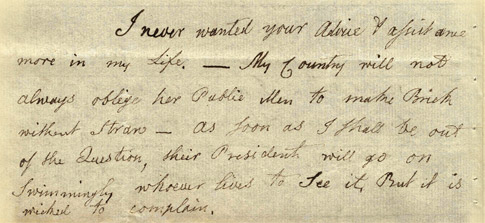 I never wanted your Advice & assistance
more in my Life. — My Country will not
always oblige her Public Men to make Brick
without Straw — As soon as I shall be out
of the Question, their President will go on
Swimmingly whoever lives to See it, But it is
wicked to complain.